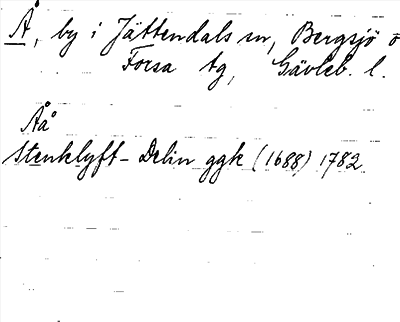 Å, by i Jättendals sn, Bergsjö o
Forsa tg, Gävleb. l.
Åå
Stenklyft-Delin ggk (1688) 1782